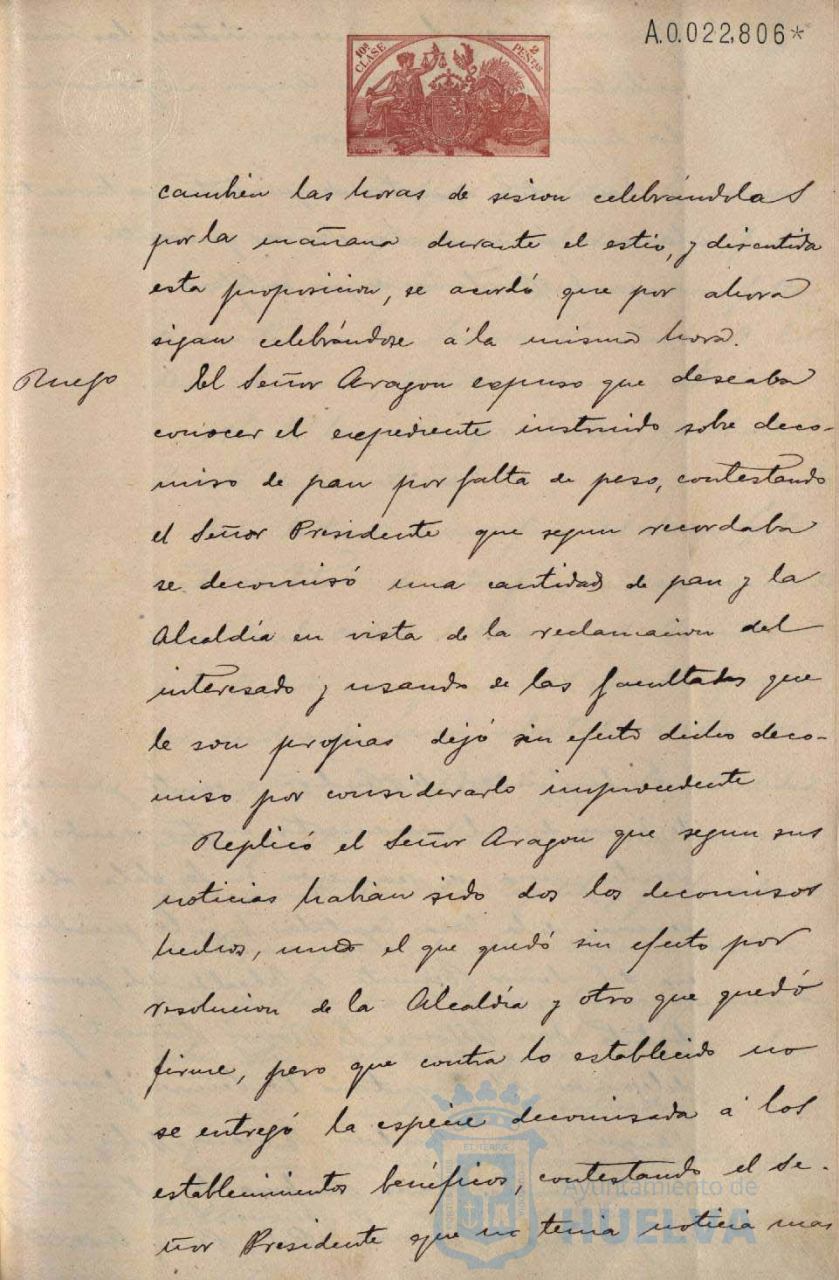 A.0.022,806*
10ª CLASE
2 PESETAS
cambien las horas de sesion celebrándolas
por la mañana durante el estio, y discutida
esta proposicion, se acordó que por ahora
sigan celebrándose á la misma hora.
Ruego
El Señor Aragon expuso que deseaba
conocer el expediente instruido sobre deco-
miso de pan por falta de peso, contestando
el Señor Presidente que segun recordaba
se decomisó una cantidad de pan y la
Alcaldía en vista de la reclamacion del
interesado y usando de las facultades que
le son propias dejó sin efecto dicho deco-
miso por considerarlo improcedente
Replicó el Señor Aragon que segun sus
noticias habian sido dos los decomisos
hechos, uno el que quedó sin efecto por
resolucion de la Alcaldía y otro que quedó
firme, pero que contra lo establecido no
se entregó la especie decomisada á los
establecimientos benéficos, contestando el Se-
ñor Presidente que no tenia noticia mas
Ayuntamiento de
HUELVA